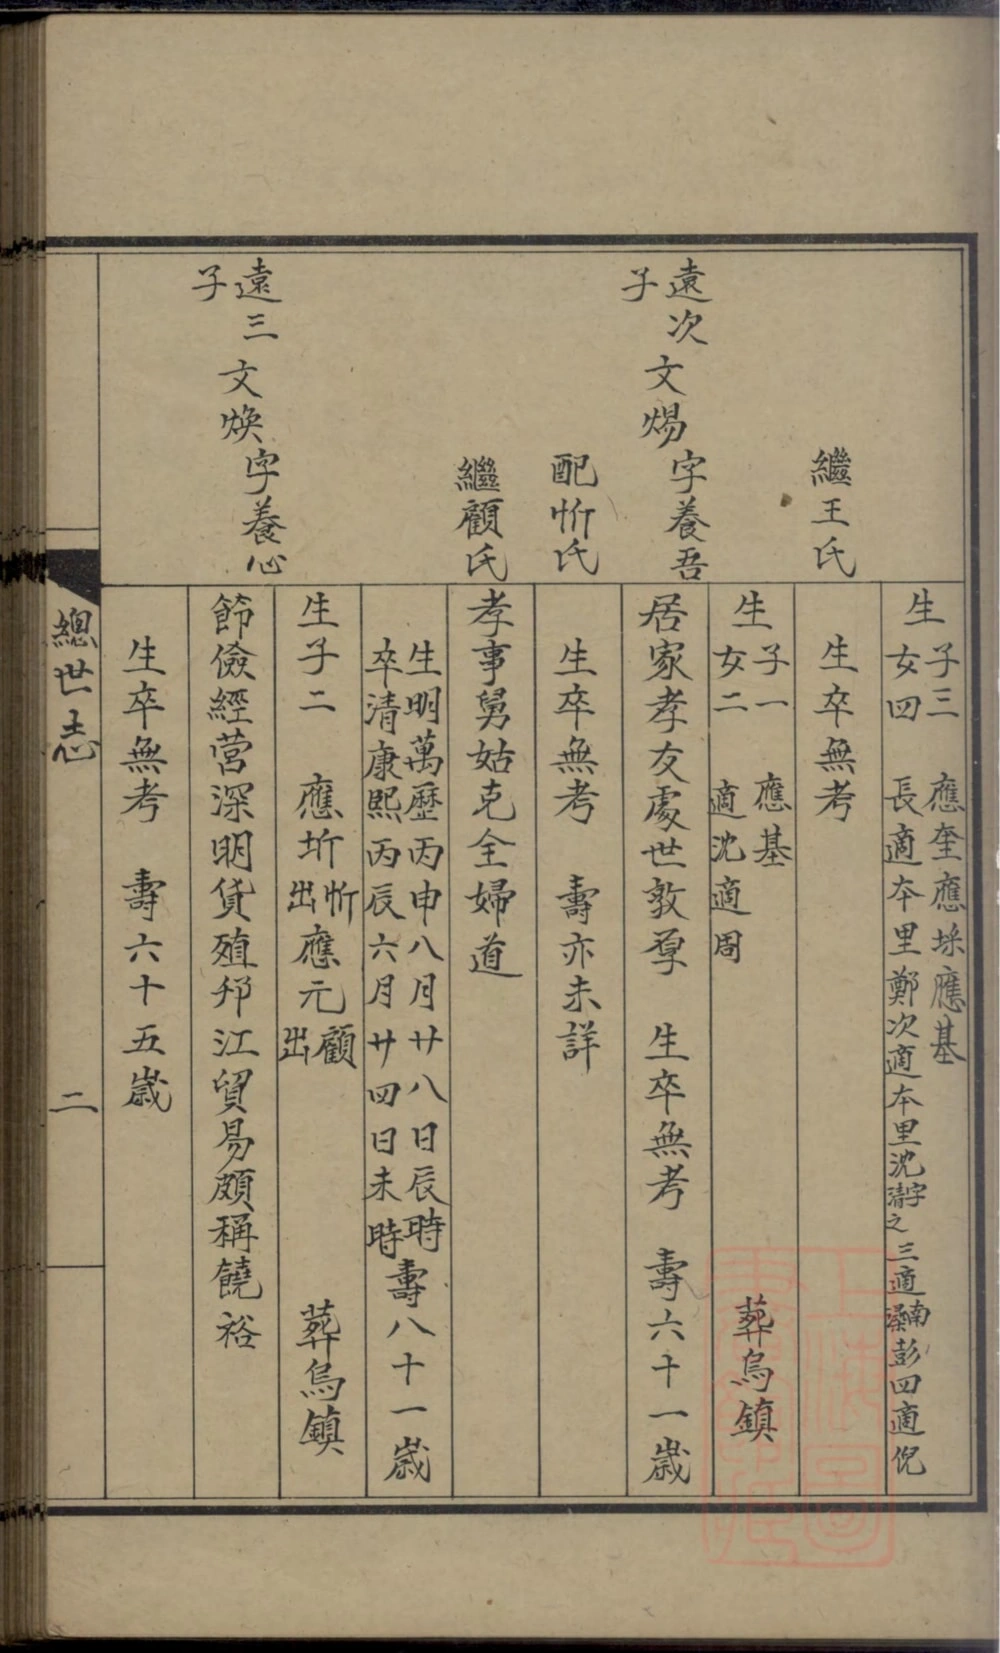 生子三 應奎應埰應基
女四 長適本里鄭次適本里沈字清之三適南潯彭四適倪
繼王氏
生卒無考
生子一 應基
女二 適沈適周 葬烏鎮
遠次子文煬字養吾
居家孝友處世敦厚 生卒無考 壽六十一歲
配忻氏
生卒無考 壽亦未詳
繼顧氏
孝事舅姑克全婦道
生明萬歷丙申八月廿八日辰時
卒清康熙丙辰六月廿四日未時壽八十一歲
生子二 應圻忻出應元顧出 葬烏鎮
遠三子文煥字養心
節儉經營深明貨殖邗江貿易頗稱饒裕
生卒無考 壽六十五歲
總世志 二
上海圖書館藏